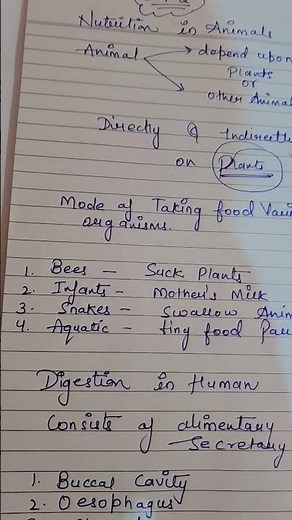 Nutrition in Animals
Animal → depend upon
Plants
or
other Animal
Directly @ Indirectl
on Plants
Mode of Taking food Vari
organisms.
1. Bees – Suck Plants
2. Infants – Mother's Milk
3. Snakes – Swallow Anim
4. Aquatic – tiny food Par
Digestion in Human
Consists of alimentary
Secretary
1. Buccal Cavity
2. Oesophagus